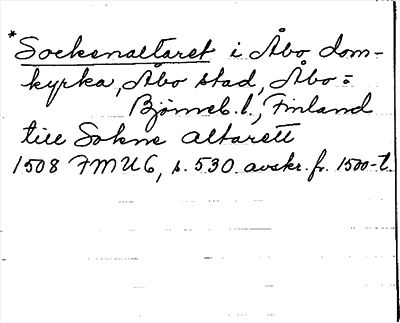 *Sockenaltaret i Åbo dom-
kyrka, Åbo stad, Åbo=
Björneb. l., Finland
till Sokne altarett
1508 FMU 6, s. 530 avskr. fr. 1500-t.